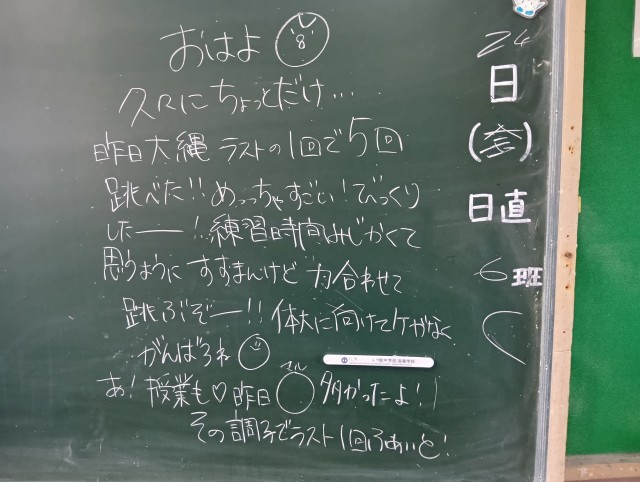 おはよ
久々にちょっとだけ…
昨日大縄 ラストの1回で5回
跳べた!!めっちゃすごい!びっくり
したー!!練習時間はみじかくて
思うようにすすまんけど 力合わせて
跳ぶぞー!!体大に向けてケガなく
がんばろね
あ!授業も♡昨日○多かったよ!!
マル
その調子でラスト1回ふぁいと!
24
日
(金)
日直
6班